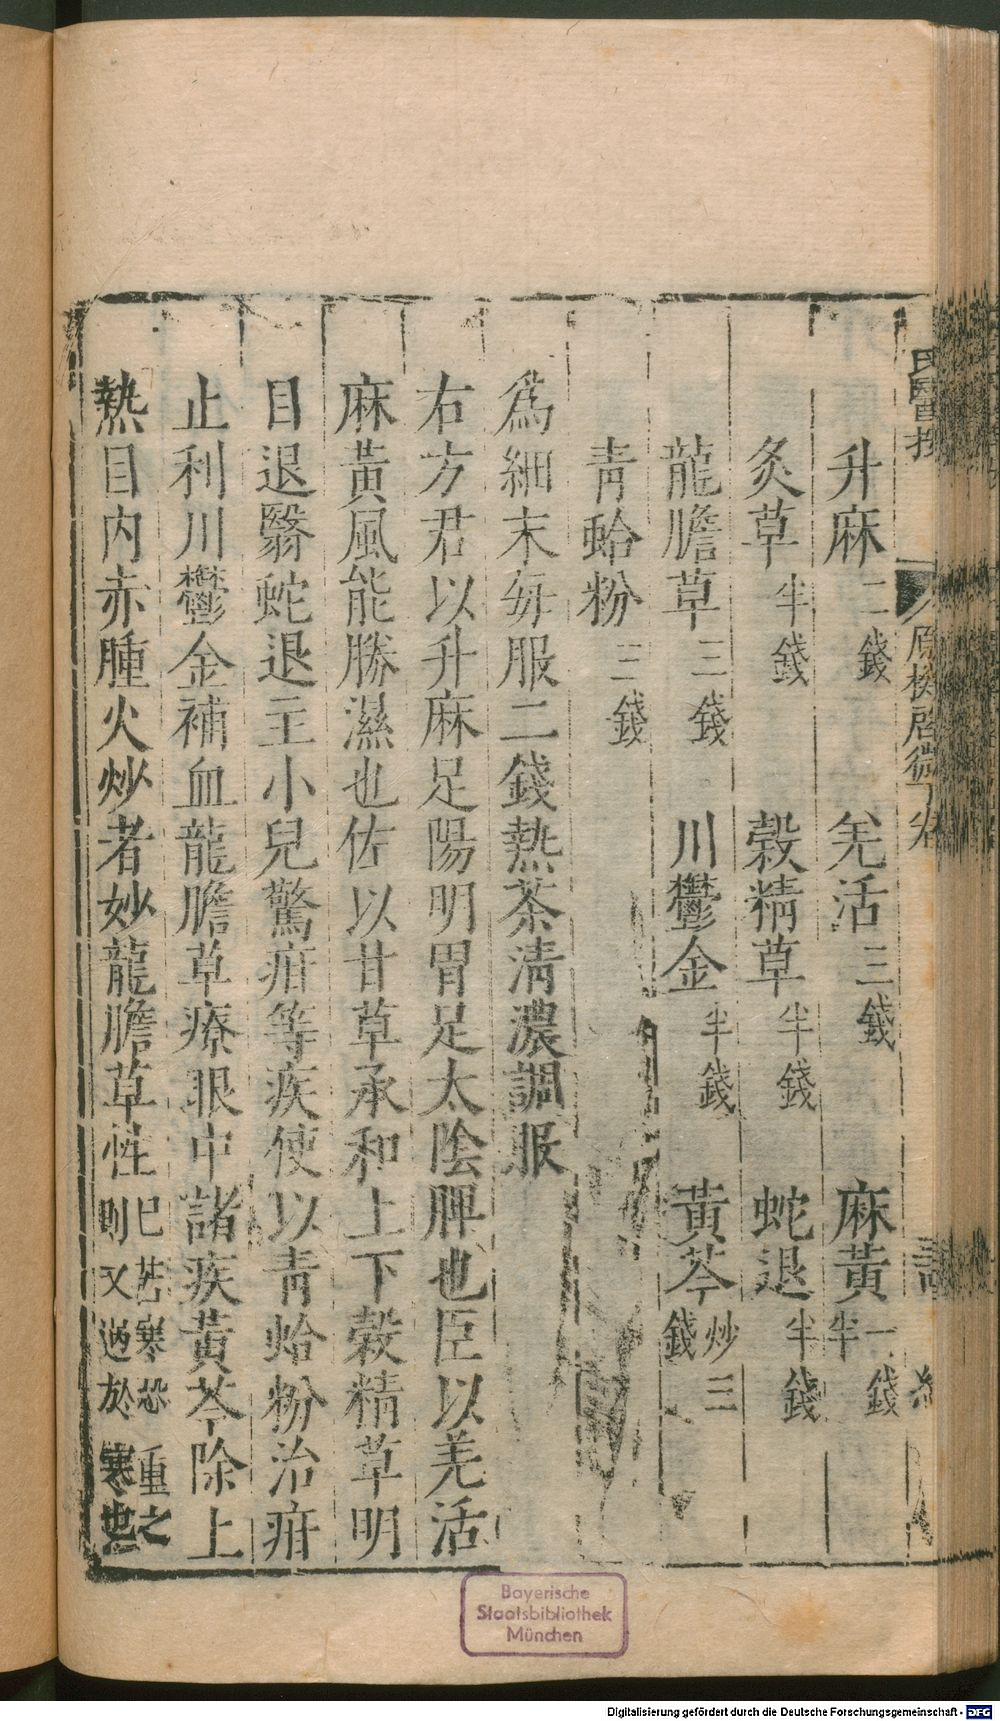 升麻二錢 羌活三錢 麻黃一錢半
炙草半錢 穀精草半錢 蛇退半錢
龍膽草三錢 川鬱金半錢 黃芩炒三錢
青蛤粉三錢
為細末每服二錢熱茶清濃調服
右方君以升麻足陽明胃足太陰脾也臣以羌活
麻黃風能勝濕也佐以甘草承和上下穀精草明
目退翳蛇退主小兒驚疳等疾使以青蛤粉治疳
止利川鬱金補血龍膽草療眼中諸疾黃芩除上
熱目内赤腫火炒者妙龍膽草性已苦寒恐重之則又過於寒也
氏醫按 原機啓微下卷
Bayerische
Staatsbibliothek
München
Digitalisierung gefördert durch die Deutsche Forschungsgemeinschaft - DFG